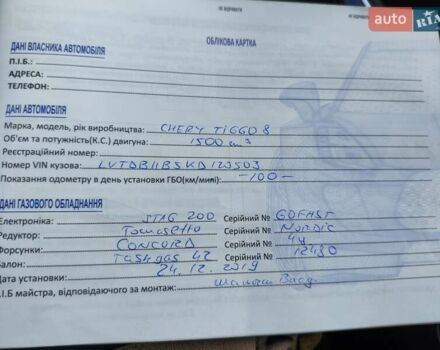 не відривати
не відривати
auto RIA
ОБЛІКОВА КАРТКА
ДАНІ ВЛАСНИКА АВТОМОБІЛЯ
П.І.Б.:
АДРЕСА:
ТЕЛЕФОН:
ДАНІ АВТОМОБІЛЯ
Марка, модель, рік виробництва: CHERY TIGGO 8
Об'єм та потужність(К.С.) двигуна: 1500 cm³
Реєстраційний номер:
Номер VIN кузова: LVTDB11B5KD123503
Показання одометру в день установки ГБО(км/милі): -100-
ДАНІ ГАЗОВОГО ОБЛАДНАННЯ
Електроніка: STAG 200 Серійний № GOFAST
Редуктор: Tomasetto Серійний № NORDIC
Форсунки: CONCORD Серійний № 4Y
Балон: Tashgas 42 Серійний № 12430
Дата установки: 24.12.2019
П.І.Б майстра, відповідаючого за монтаж: